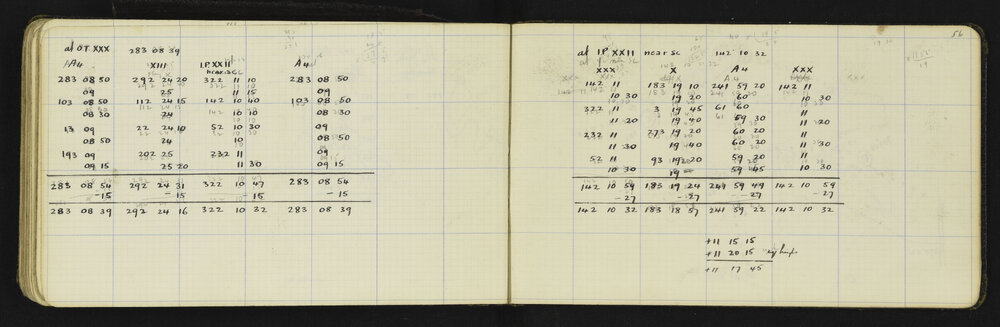 56
at OT XXX 283 08 39
A4 XIII I.P. XXII A4
near SC
283 08 50 292 24 20 322 11 10 283 08 50
09 25 11 15 09
103 08 50 112 24 15 142 10 40 103 08 50
08 30 24 10 10 08 30
13 09 22 24 10 52 10 30 09
08 50 24 10 08 50
193 09 202 25 232 11 09
09 15 25 20 11 30 09 15
283 08 54 292 24 31 322 10 47 283 08 54
-15 -15 -15 -15
283 08 39 292 24 16 322 10 32 283 08 39
at I.P XXII near SC 142 10 32
XXX X A4 XXX
142 11 183 19 10 241 59 20 142 11
10 30 19 20 60 10 30
322 11 3 19 45 61 60 11
11 20 19 40 59 30 11 20
232 11 273 19 20 60 20 11
11 30 19 40 60 20 11 30
52 11 93 19 20 59 20 11
10 30 19 59 45 10 30
142 10 59 183 19 24 241 59 49 142 10 59
-27 -27 -27 -27
142 10 32 183 18 57 241 59 22 142 10 32
+11 15 15
+11 20 15
+11 17 45